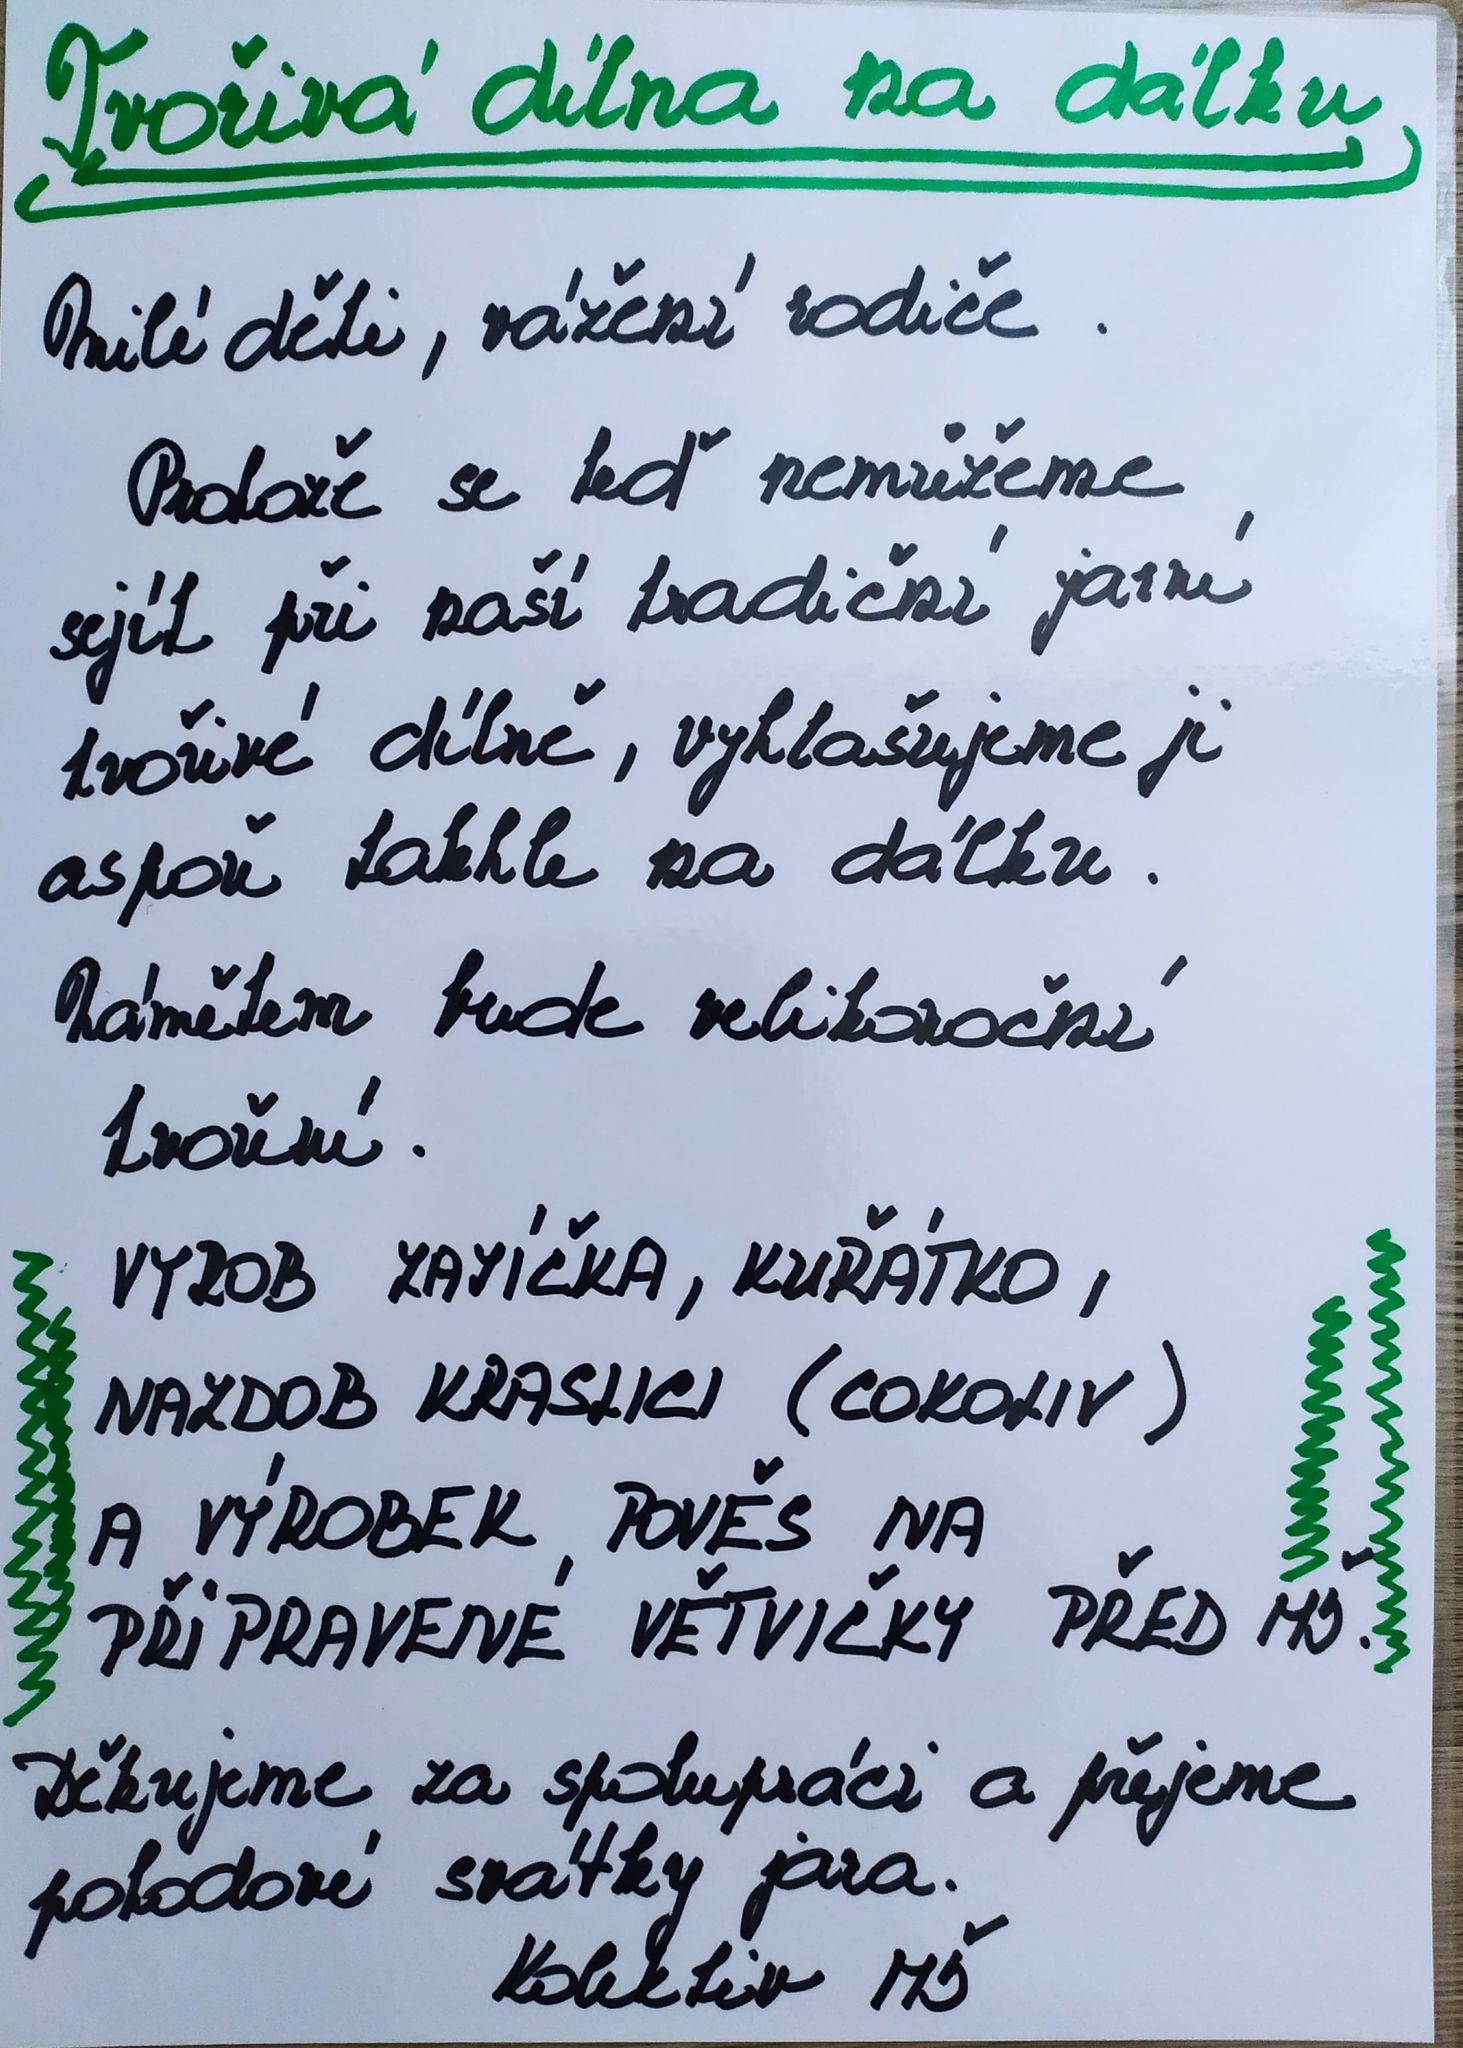 Tvořivá dílna na dálku
Milé děti, vážení rodiče.
Protože se teď nemůžeme
sejít při naší tradiční jarní
tvořivé dílně, vyhlašujeme ji
aspoň takhle na dálku.
Námětem bude velikonoční
tvoření.
VYROB ZAJÍČKA, KUŘÁTKO,
NAZDOB KRASLICI (COKOLIV)
A VÝROBEK POVĚS NA
PŘIPRAVENÉ VĚTVIČKY PŘED MŠ.
Děkujeme za spolupráci a přejeme
pohodové svátky jara.
Kolektiv MŠ